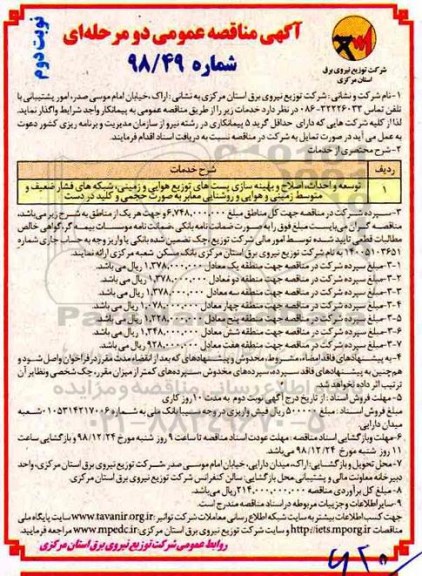 نوبت دوم
آگهی مناقصه عمومی دو مرحله‌ای
شماره ۹۸/۴۹
شرکت توزیع نیروی برق
استان مرکزی
۱-نام شرکت و نشانی: شرکت توزیع نیروی برق استان مرکزی به نشانی: اراک، خیابان امام موسی صدر، امور پشتیبانی با
تلفن تماس ۳۲۲۲۶۰۳۳-۰۸۶ در نظر دارد خدمات زیر را از طریق مناقصه عمومی به پیمانکار واجد شرایط واگذار نماید.
لذا از کلیه شرکت هایی که دارای حداقل گرید ۵ پیمانکاری در رشته نیرو از سازمان مدیریت و برنامه ریزی کشور دعوت
به عمل می آید در صورت تمایل به شرکت در مناقصه نسبت به دریافت اسناد اقدام فرمایند.
۲-شرح مختصری از خدمات
ردیف شرح خدمات
۱ توسعه و احداث، اصلاح و بهینه سازی پست های توزیع هوایی و زمینی، شبکه های فشار ضعیف و
متوسط زمینی و هوایی و روشنایی معابر به صورت حجمی و کلید در دست
۳-سپرده شرکت در مناقصه جهت کل مناطق مبلغ ۶،۷۴۸،۰۰۰،۰۰۰ و جهت هر یک از مناطق به شرح زیر می‌باشد،
مناقصه گران می‌بایست مبلغ فوق را به صورت ضمانت نامه بانکی، ضمانت نامه موسسات بیمه گر، گواهی خالص
مطالبات قطعی تایید شده توسط امور مالی شرکت توزیع، چک تضمین شده بانکی یا واریز وجه به حساب جاری شماره
۱۴۰۰۵۱۰۳۶۵۱ به نام شرکت توزیع نیروی برق استان مرکزی بانک مسکن شعبه مرکزی ارائه نمایند.
۳-۱-مبلغ سپرده شرکت در مناقصه جهت منطقه یک معادل ۱،۳۷۸،۰۰۰،۰۰۰ ریال می باشد.
۳-۲-مبلغ سپرده شرکت در مناقصه جهت منطقه دو معادل ۱،۳۷۸،۰۰۰،۰۰۰ ریال می باشد.
۳-۳-مبلغ سپرده شرکت در مناقصه جهت منطقه سه معادل ۱،۳۷۸،۰۰۰،۰۰۰ ریال می باشد.
۳-۴-مبلغ سپرده شرکت در مناقصه جهت منطقه چهار معادل ریال می باشد.
۳-۵-مبلغ سپرده شرکت در مناقصه جهت منطقه پنج معادل ریال می باشد.
۳-۶-مبلغ سپرده شرکت در مناقصه جهت منطقه شش معادل ریال می باشد.
۳-۷-مبلغ سپرده شرکت در مناقصه جهت منطقه هفت معادل ۹۲۸،۰۰۰،۰۰۰ ریال می باشد.
۴-به پیشنهادهای فاقد امضاء، مشروط، مخدوش و پیشنهادهای که بعد از انقضاء مدت مقرر در فراخوان واصل شود و
همچنین به پیشنهادهای فاقد سپرده، سپرده‌های مخدوش، سپرده‌های کمتر از میزان مقرر، چک شخصی و نظایر آن
ترتیب اثر داده نخواهد شد.
۵-مهلت فروش اسناد: از تاریخ درج آگهی نوبت دوم به مدت ۱۰ روز کاری
مبلغ فروش اسناد: مبلغ ۵۰۰۰۰۰ ریال فیش واریزی در وجه سیبا بانک ملی به شماره ۰۱۰۵۳۱۴۲۱۷۰۰۶ شعبه
میدان دارایی.
۶-مهلت و بازگشایی اسناد مناقصه: مهلت عودت اسناد مناقصه تا ساعت ۹ روز شنبه مورخ ۹۸/۱۲/۲۴ و بازگشایی ساعت
۱۱ روز شنبه مورخ ۹۸/۱۲/۲۴ می باشد.
۷-محل تحویل و بازگشایی: اراک، میدان دارایی، خیابان امام موسی صدر شرکت توزیع نیروی برق استان مرکزی، واحد
دبیرخانه معاونت مالی و پشتیبانی محل بازگشایی: سالن کنفرانس شرکت توزیع نیروی برق استان مرکزی.
۸-مبلغ کل برآوردی مناقصه ۲۱۴،۰۰۰،۰۰۰،۰۰۰ ریال می‌باشد.
۹-سایر اطلاعات و جزییات مربوطه در اسناد مناقصه مندرج است.
جهت کسب اطلاعات بیشتر به سایت شبکه اطلاع رسانی معاملات شرکت توانیر: www.tavanir.org.ir سایت پایگاه ملی
مناقصات http://iets.mporg.ir و سایت شرکت توزیع نیروی برق استان مرکزی www.mpedc.ir مراجعه فرمایید.
روابط عمومی شرکت توزیع نیروی برق استان مرکزی